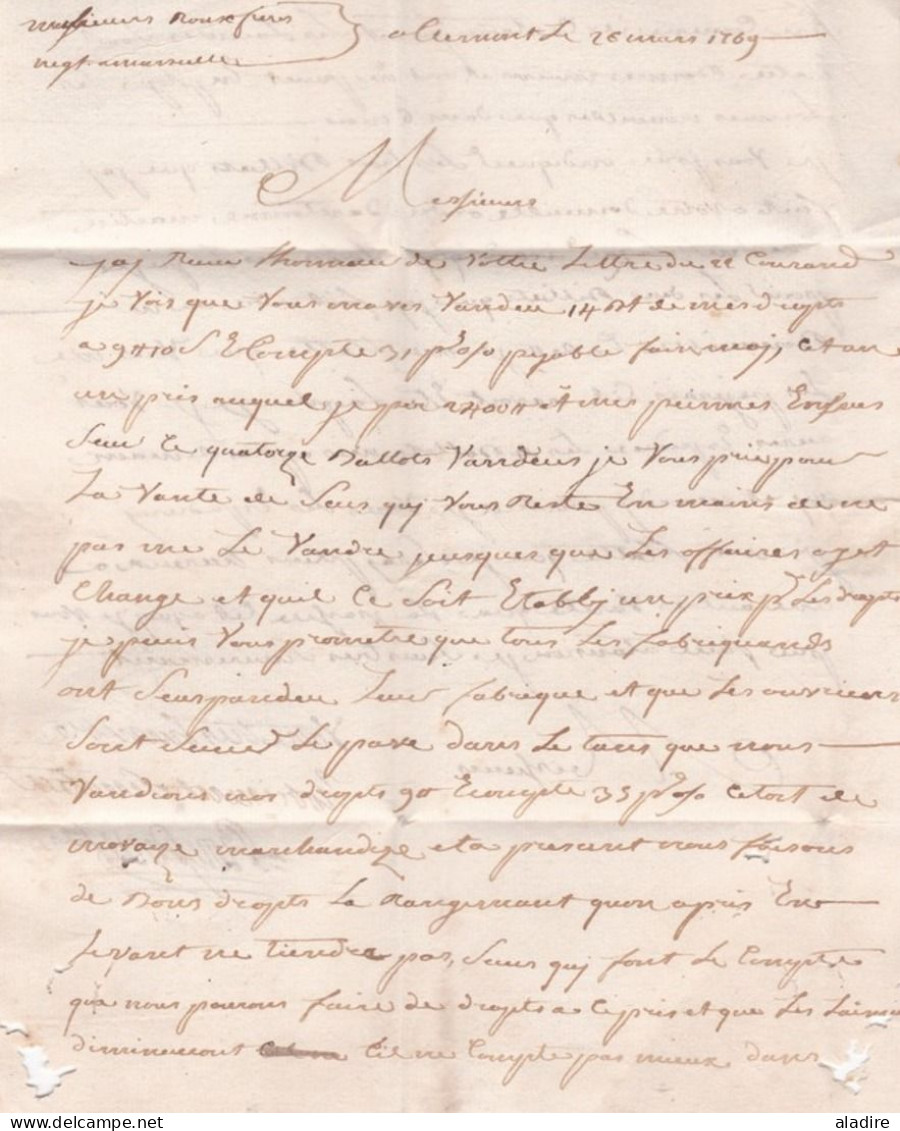 messieurs Roux freres
negt a marseille
a Clermont le 26 mars 1769
Messieurs
jay Receu lhonneur de Vottre Lettre du 22 Courand
je vois que vous maves vandeu 14 Bt de mes drapts
a 9tt10s Ecompte 31 pr o/o payable fin may, cet an
un pris auquel je per 2400tt et mes peinnes Ensus
seur le quatorze Ballots vandeus je vous prie pour
La vante de seus quy vous Reste En mains de ne
pas me Le vandre jeusques que Les affaires ayet
Change et quil Ce soit Etably un prix pr Les drapts
je peus vous prometre que tous Les fabriquands
ont seuspandeu Leur fabrique et que Les ouvriers
sont seur Le pave dans Le tans que nous
vandions nos drapts 90 Ecompte 35 pr o/o Cetoit de
movaize marchandize et a present nous faisons
de Bons drapts La Rangemant quon apris En
Levant ne tiendra pas, seus quy font Le Compte
que nous pouvons faire de drapts a Ce pris et que Les Laines
diminueront il ne Compte pas mieux dans
aladire